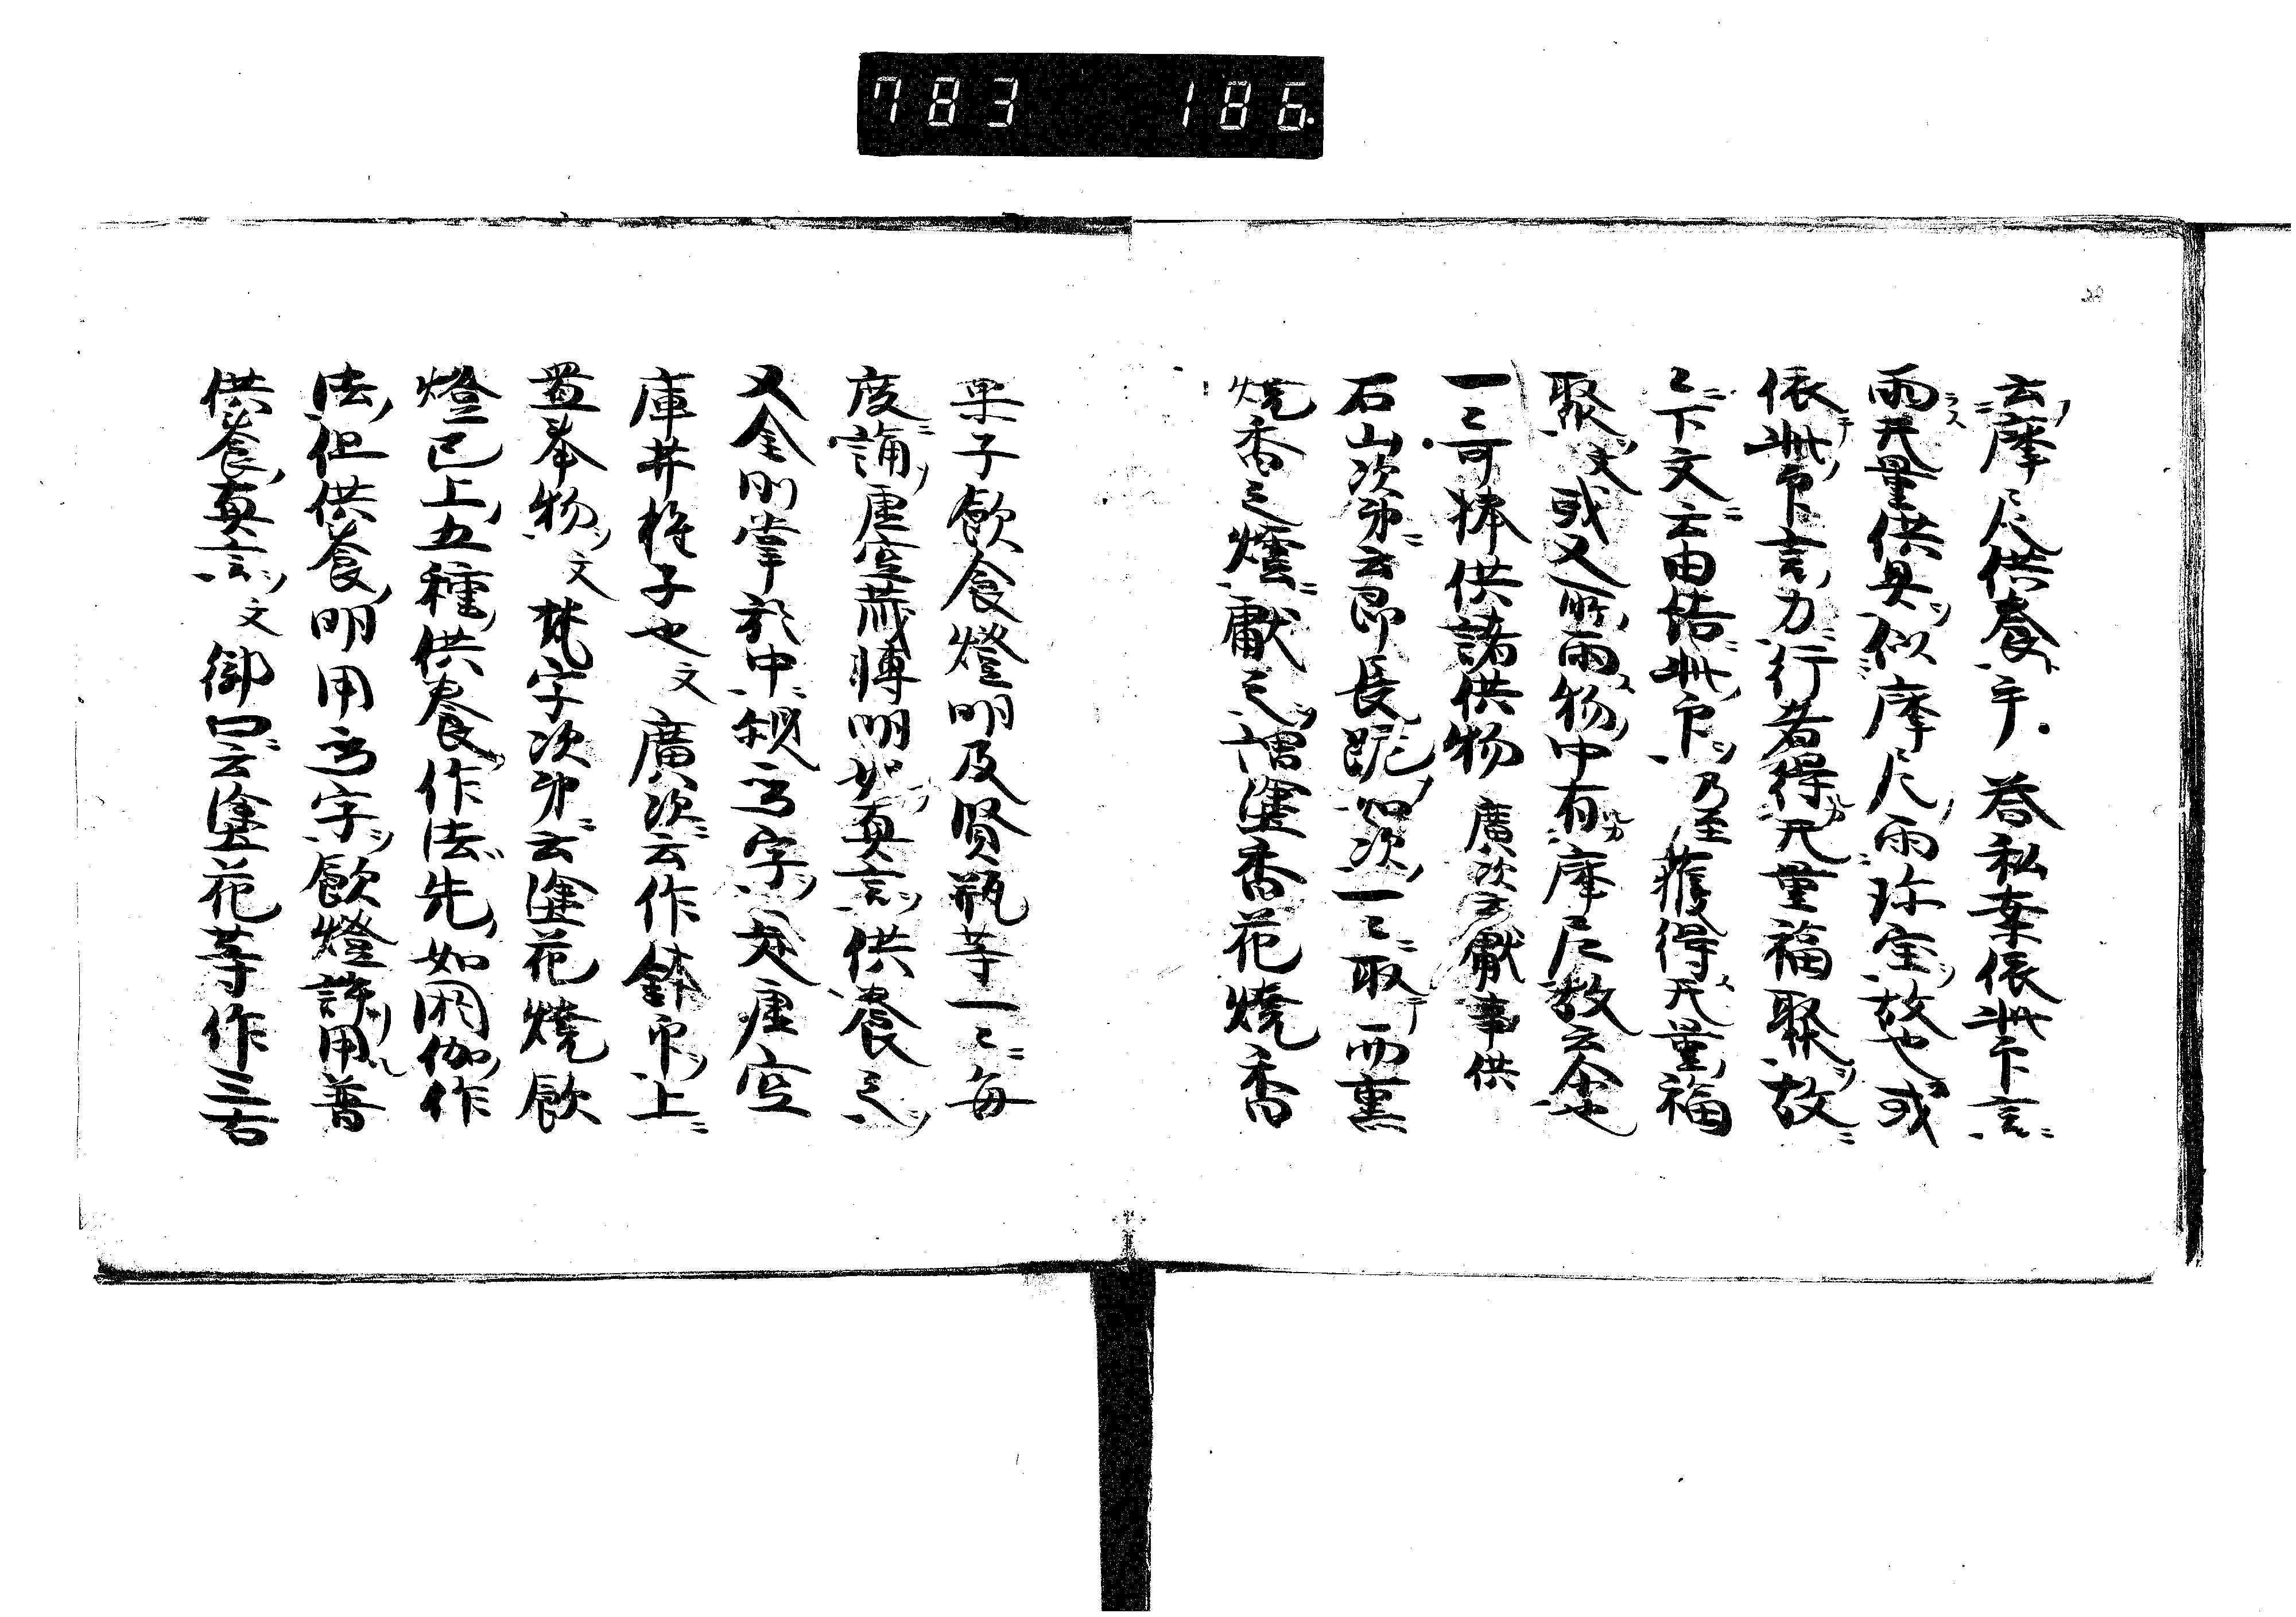 783 186
云摩尼供養乎 答私案依此印言
雨无量供具似摩尼雨珎宝故也或
依此印言力行者得无量福聚故
〻下文云由結此印乃至獲得无量福
聚文或又所雨物中有摩尼故云尒也
一〻可捧供諸供物 廣次云獻事供
石山次第云即長跪如次一〻取而熏
焼香之煙獻之謂塗香花燒香
果子飲食燈明及賢瓶等一〻每
度誦虚空蔵轉明如真言供養之
又金剛掌於中観字是虚空
庫并極子也文 廣次云作鉢印上
置奉物文 梵字次第云塗花燒飲
燈已上五種供養作法先如閼伽作
法但供養明用字飲燈許用普
供養真言文 御口云塗花等作三古